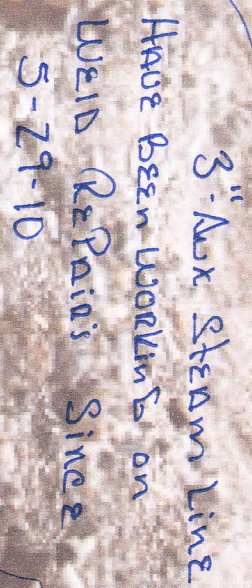 3"-Aux Steam Line
Have Been Working on
Weld RePairs Since
5-29-10